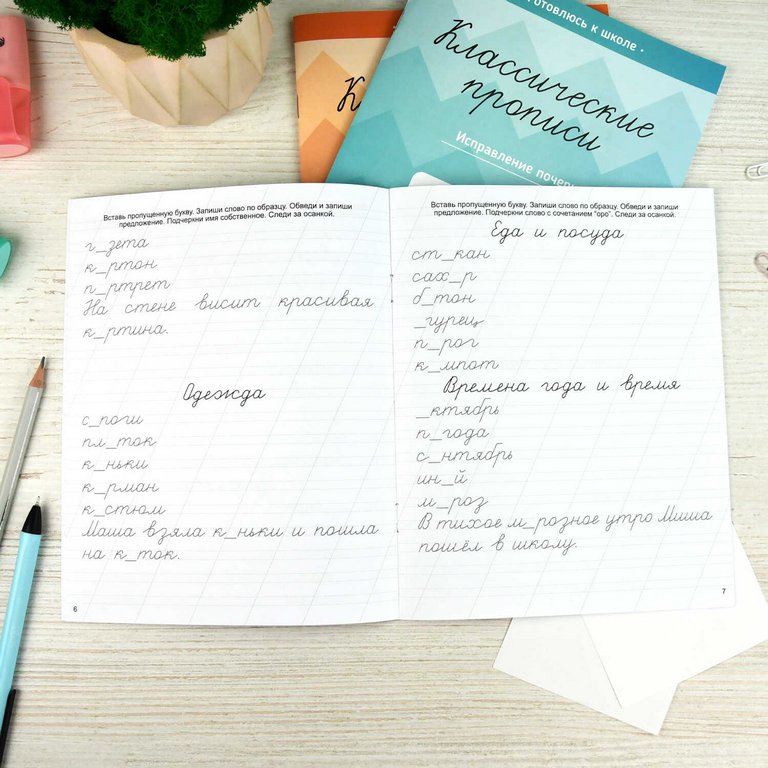 готовлюсь к школе ·
Классические
прописи
Исправление почер
К
Вставь пропущенную букву. Запиши слово по образцу. Обведи и запиши
предложение. Подчеркни имя собственное. Следи за осанкой.
г_зета
к_ртон
п_ртрет
На стене висит красивая
к_ртина.
Одежда
с_поги
пл_ток
к_ньки
к_рман
к_стюм
Маша взяла к_ньки и пошла
на к_ток.
6
Вставь пропущенную букву. Запиши слово по образцу. Обведи и запиши
предложение. Подчеркни слово с сочетанием "оро". Следи за осанкой.
Еда и посуда
ст_кан
сах_р
б_тон
_гурец
п_рог
к_мпот
Времена года и время
_ктябрь
п_года
с_нтябрь
ин_й
м_роз
В тихое м_розное утро Миша
пошёл в школу.
7